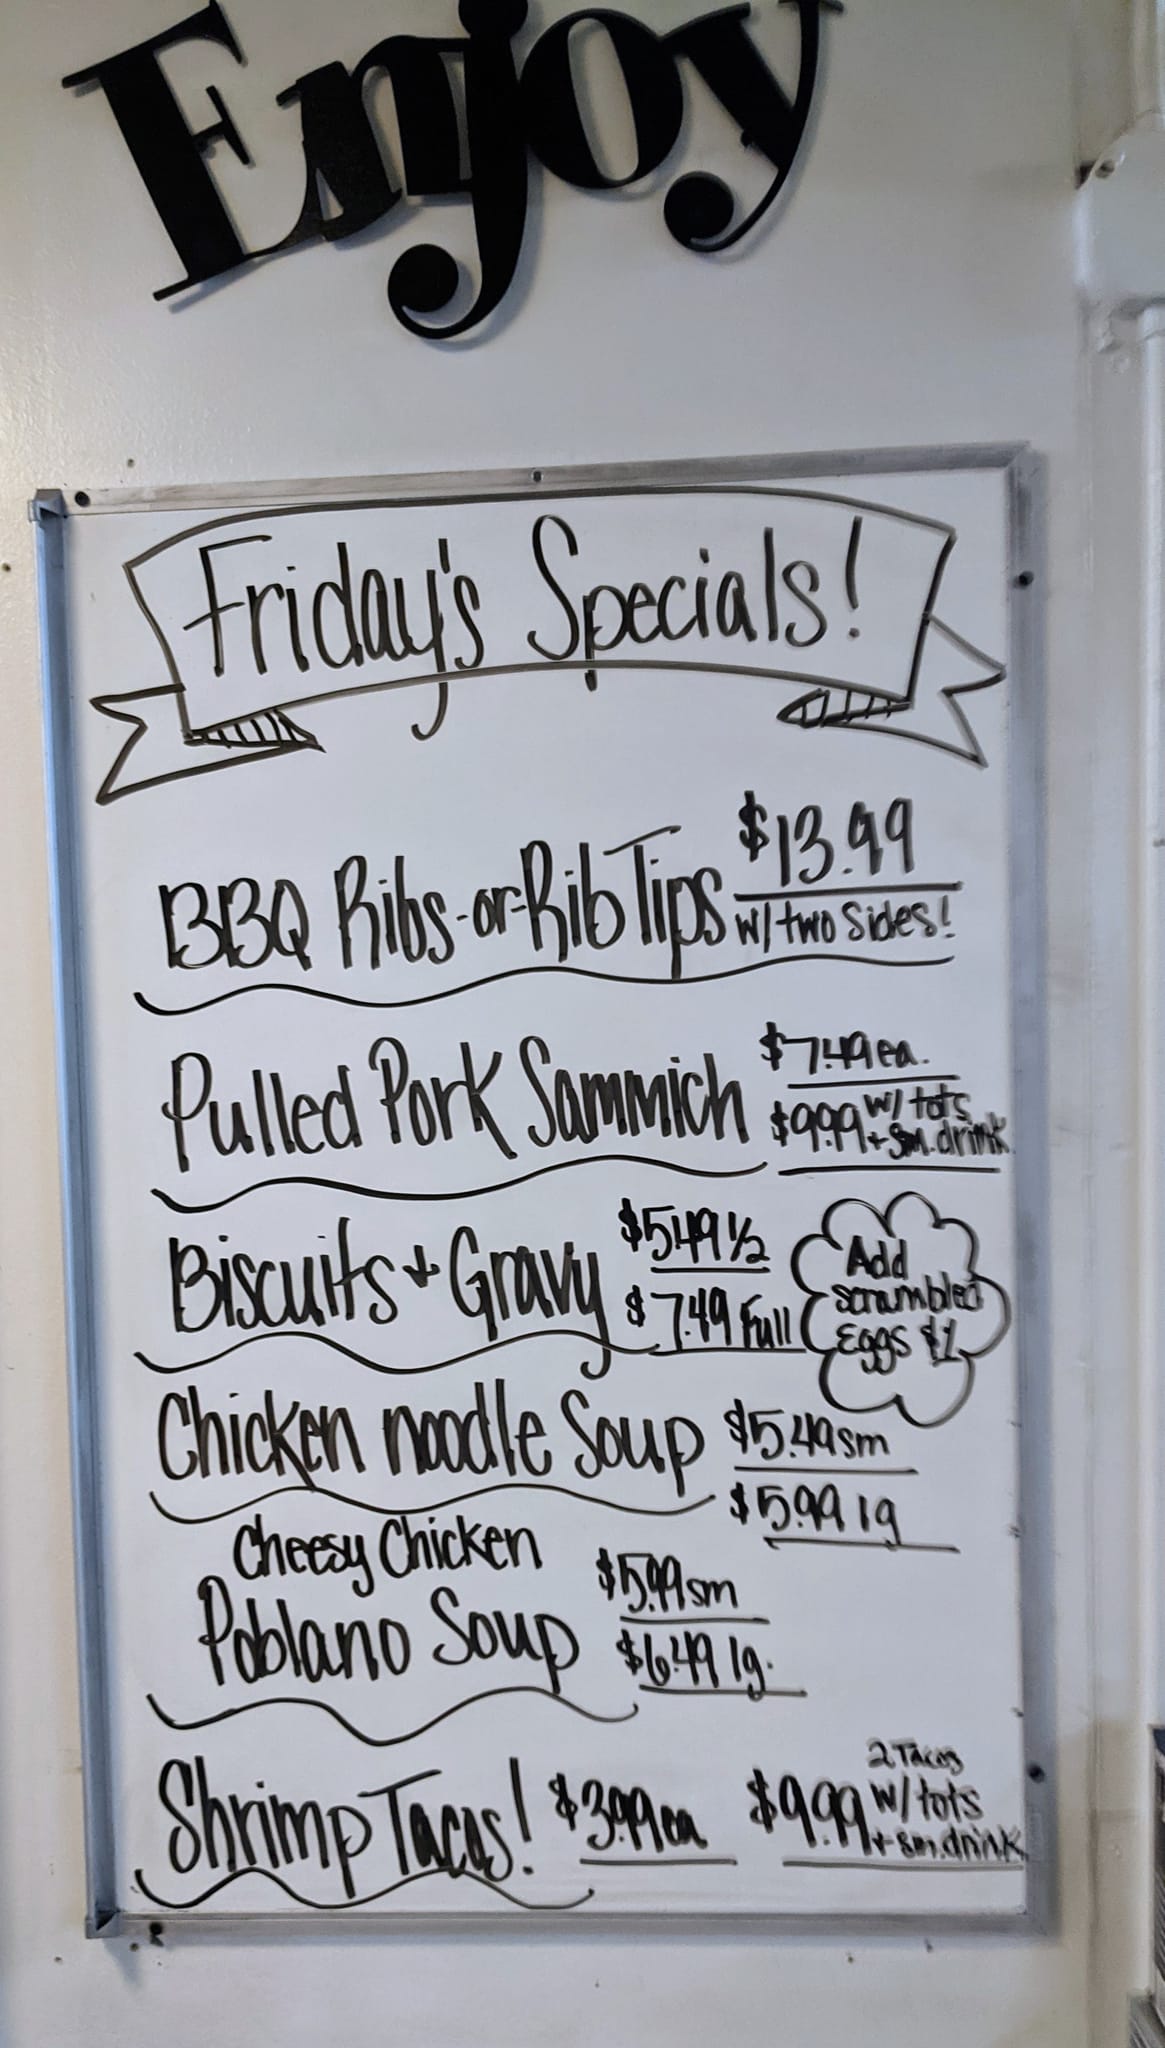 Enjoy
Friday's Specials!
BBQ Ribs-or-Rib Tips $13.99
w/two sides!
Pulled Pork Sammich $7.49 ea.
$9.99 w/ tots
+ sm. drink
Biscuits + Gravy $5.49 1/2
$7.49 Full
Add
scrambled
Eggs $1
Chicken noodle Soup $5.49 sm
$5.99 lg
Cheesy Chicken
Poblano Soup $5.99 sm
$6.49 lg.
Shrimp Tacos! $3.99 ea $9.99 2 Tacos
w/ tots
+ sm. drink